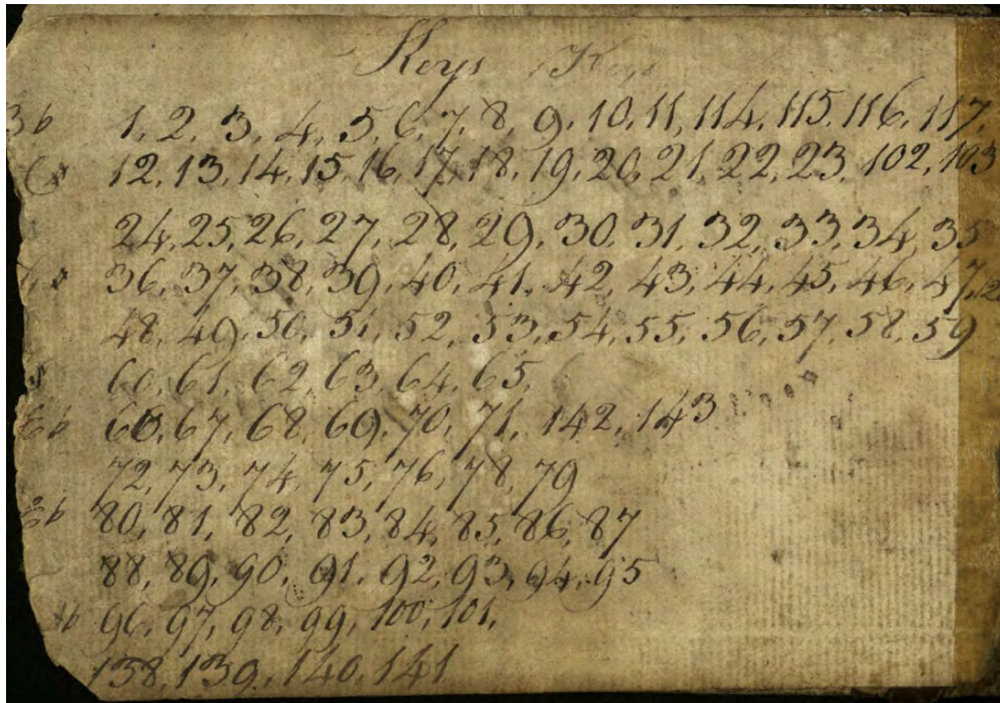 Keys Keys
3b 1, 2, 3, 4, 5, 6, 7, 8, 9, 10, 11, 114, 115, 116, 117,
12, 13, 14, 15, 16, 17, 18, 19, 20, 21, 22, 23, 102, 103
24, 25, 26, 27, 28, 29, 30, 31, 32, 33, 34, 35
36, 37, 38, 39, 40, 41, 42, 43, 44, 45, 46, 47,
48, 49, 50, 51, 52, 53, 54, 55, 56, 57, 58, 59
60, 61, 62, 63, 64, 65,
66, 67, 68, 69, 70, 71, 142, 143
72, 73, 74, 75, 76, 78, 79
80, 81, 82, 83, 84, 85, 86, 87
88, 89, 90, 91, 92, 93, 94, 95
96, 97, 98, 99, 100, 101,
138, 139, 140, 141